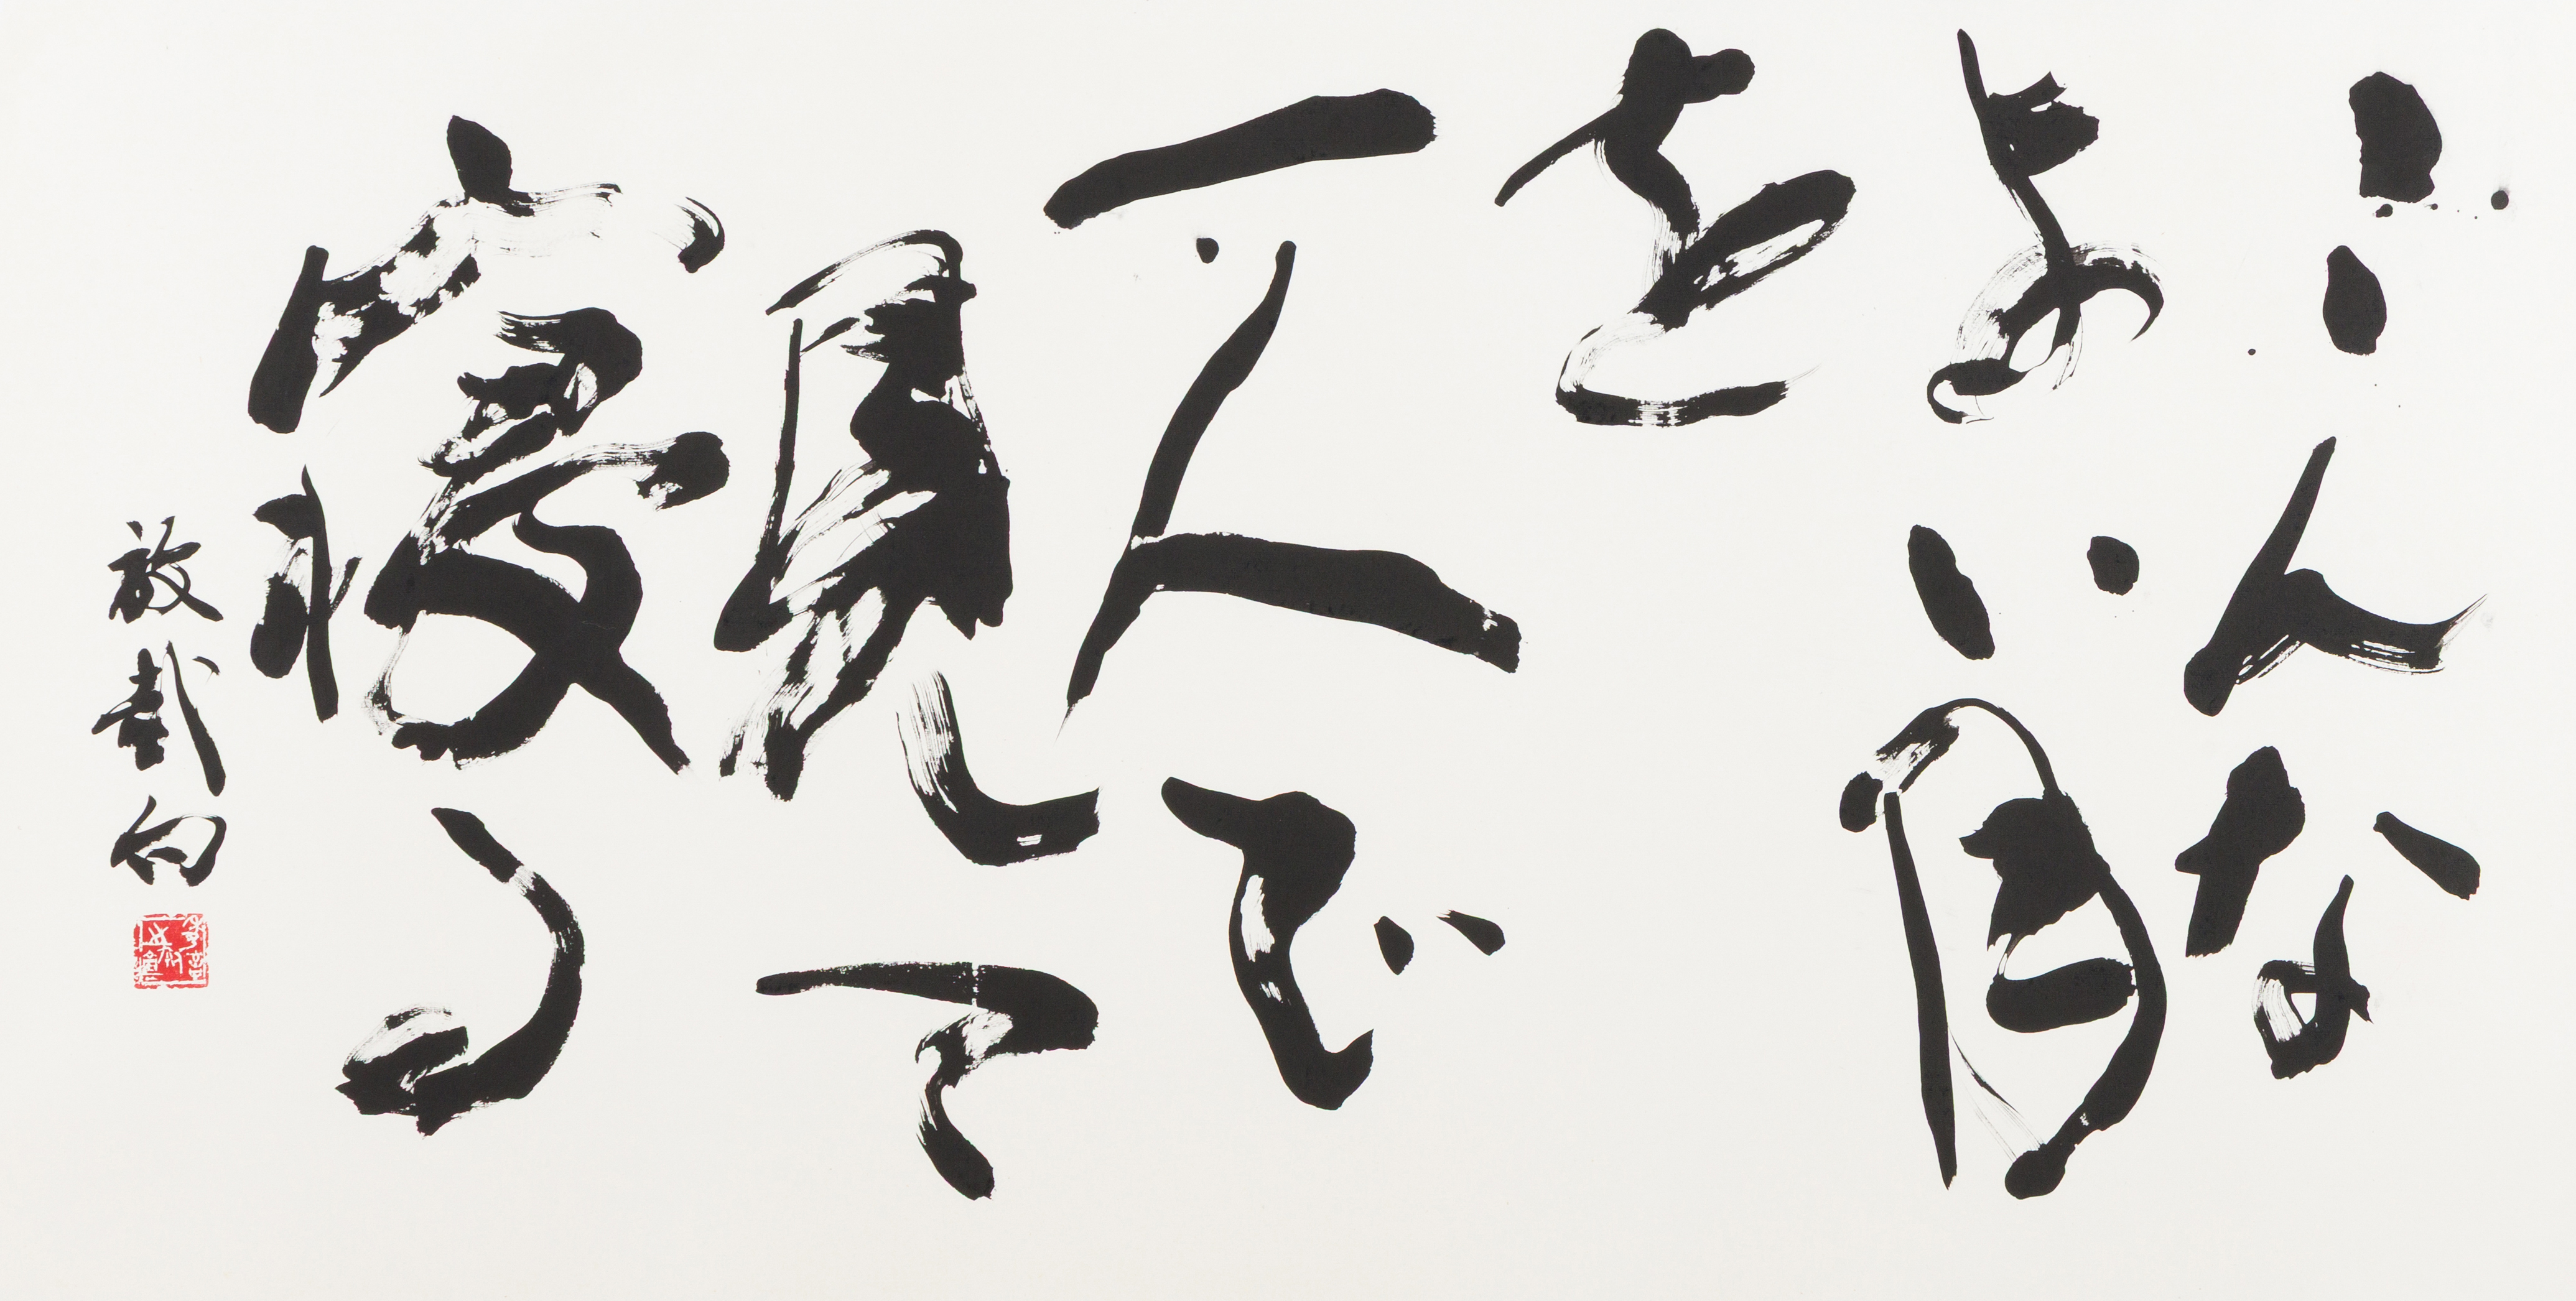 こんな
よい月
を
一人で
見て
寝る
放哉句